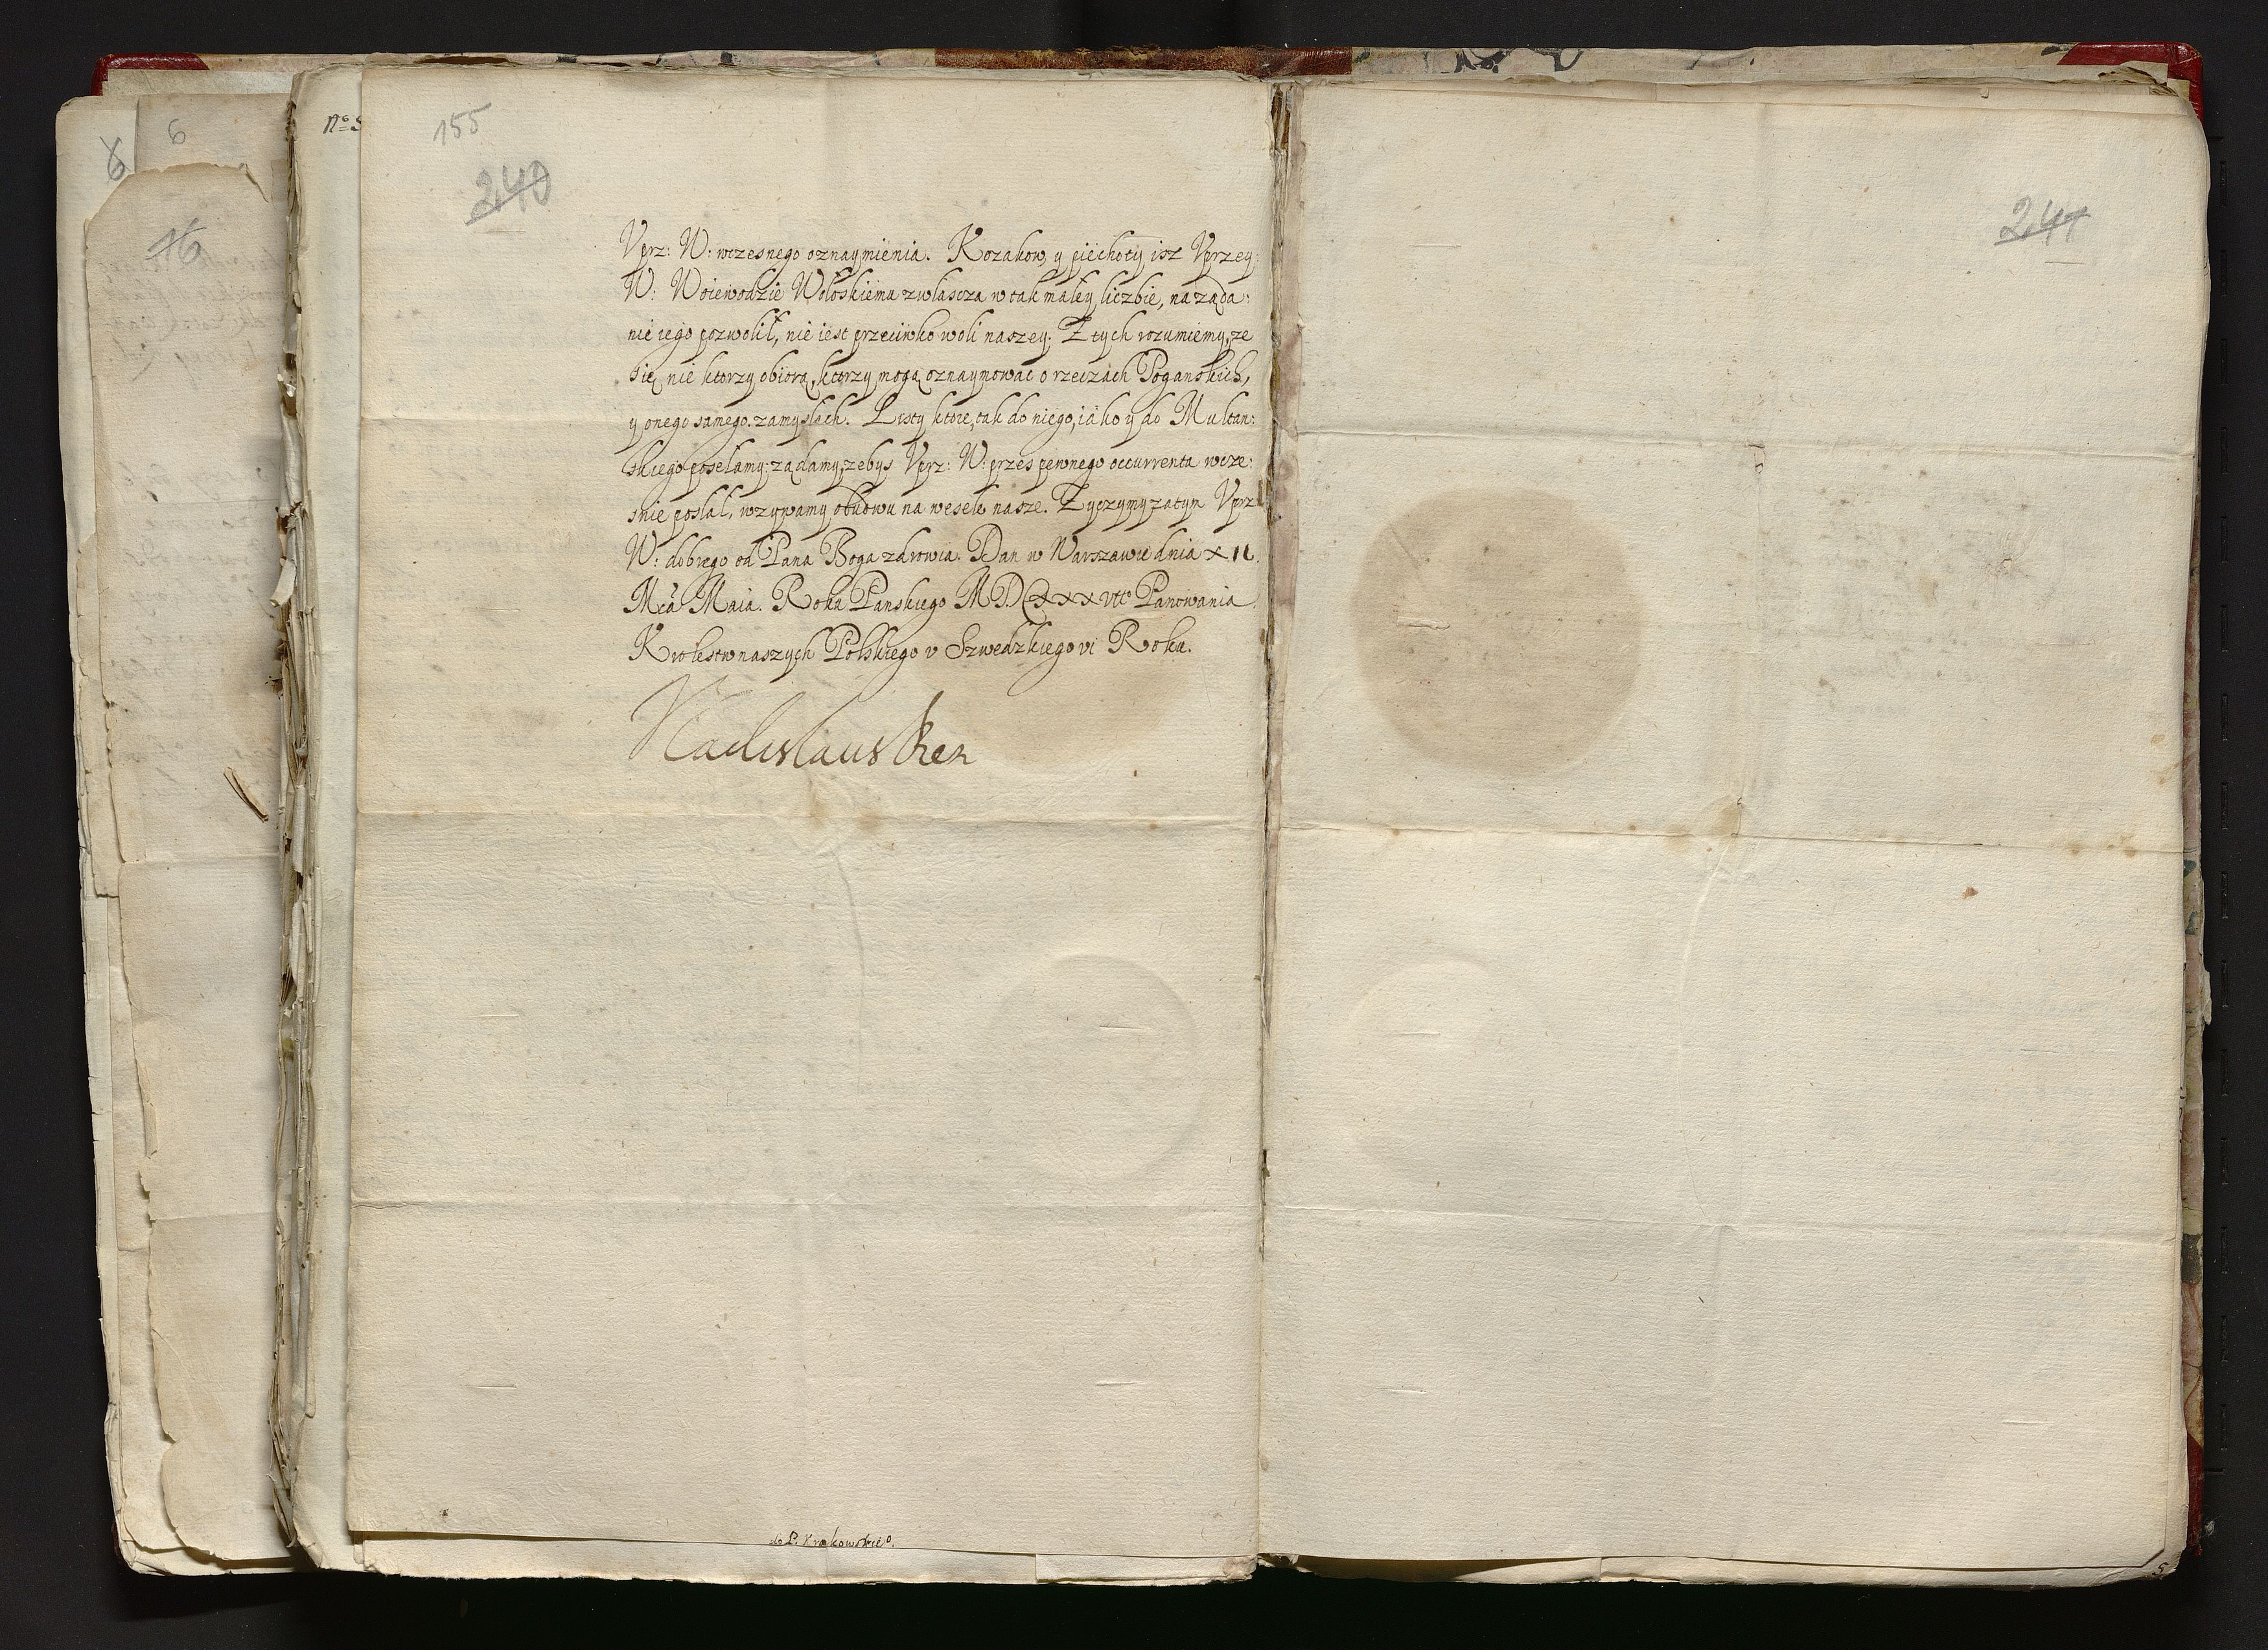 155
240
Vprz: W: wczesnego oznaymienia. Kozakow, y piechoty isz Vprzey:
W: Woiewodzie Wołoskiemu zwłascza w tak małey liczbie, na ząda:
nie iego pozwolił, nie iest przeciwko woli naszey. Z tych rozumiemy, ze
się nie ktorzy obiorą, ktorzy mogą oznaymowac o rzeczach Poganskich,
y onego samego zamysłach. Listy ktore, tak do niego, iako y do Multan:
skiego posełamy: ządamy, zebys Vprz: W: przes pewnego occurrenta wcze:
snie posłał, wzywamy obudwu na wesele nasze. Zyczymy zatym Vprz:
W: dobrego od Pana Boga zdrowia. Dan w Warszawie dnia XII.
Mca Maia. Roku Panskiego MDCXXXVII° Panowania
Krolestw naszych Polskiego v Szwedzkiego vi Roku.
Vladislaus Rex
do P. Krakowskie°.
241
6
6
16
N° 5
5